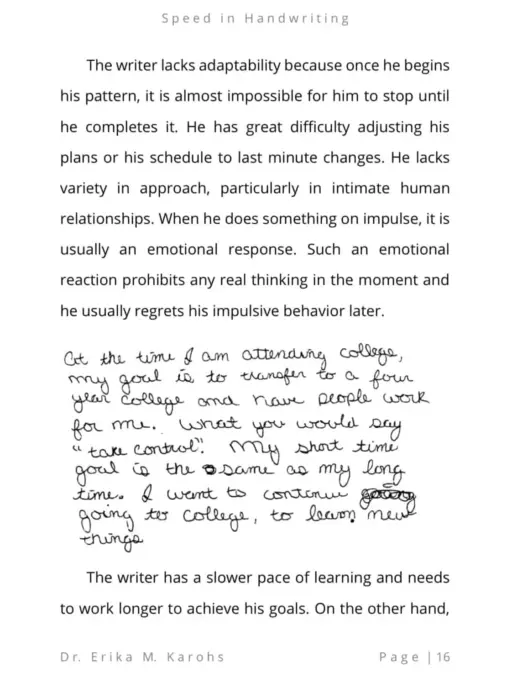 Speed in Handwriting
The writer lacks adaptability because once he begins
his pattern, it is almost impossible for him to stop until
he completes it. He has great difficulty adjusting his
plans or his schedule to last minute changes. He lacks
variety in approach, particularly in intimate human
relationships. When he does something on impulse, it is
usually an emotional response. Such an emotional
reaction prohibits any real thinking in the moment and
he usually regrets his impulsive behavior later.
At the time I am attending college,
my goal is to transfer to a four
year college and have people work
for me. What you would say
"take control". My short time
goal is the same as my long
time. I want to contenue going
going to college, to learn new
things
The writer has a slower pace of learning and needs
to work longer to achieve his goals. On the other hand,
Dr. Erika M. Karohs
Page | 16